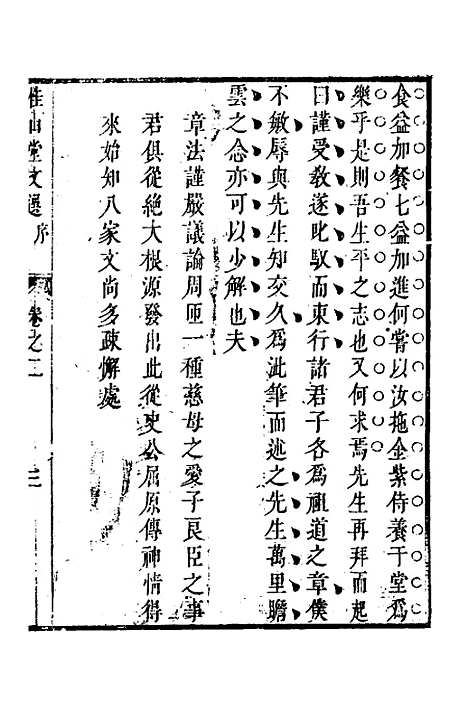 食益加餐七益加進何嘗以汝拖金紫侍養于堂爲
樂乎是則吾生平之志也又何求焉先生再拜而起
曰謹受敎遂叱馭而東行諸君子各爲祖道之章僕
不敏辱與先生知交久爲泚筆而述之先生萬里瞻
雲之念亦可以少解也夫
章法謹嚴議論周匝一種慈母之愛子良臣之事
君俱從絶大根源發出此從史公屈原傳神情得
來始知八家文尚多疎懈處
惟山堂文選 序 卷之二 三